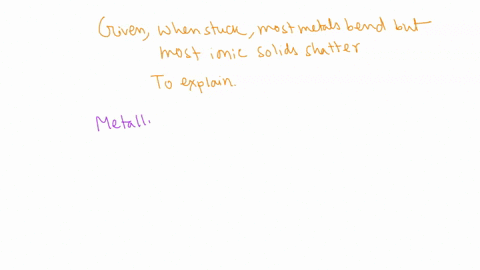 Given, when stuck, most metals bend but
most ionic solids shatter
To explain.
Metall.